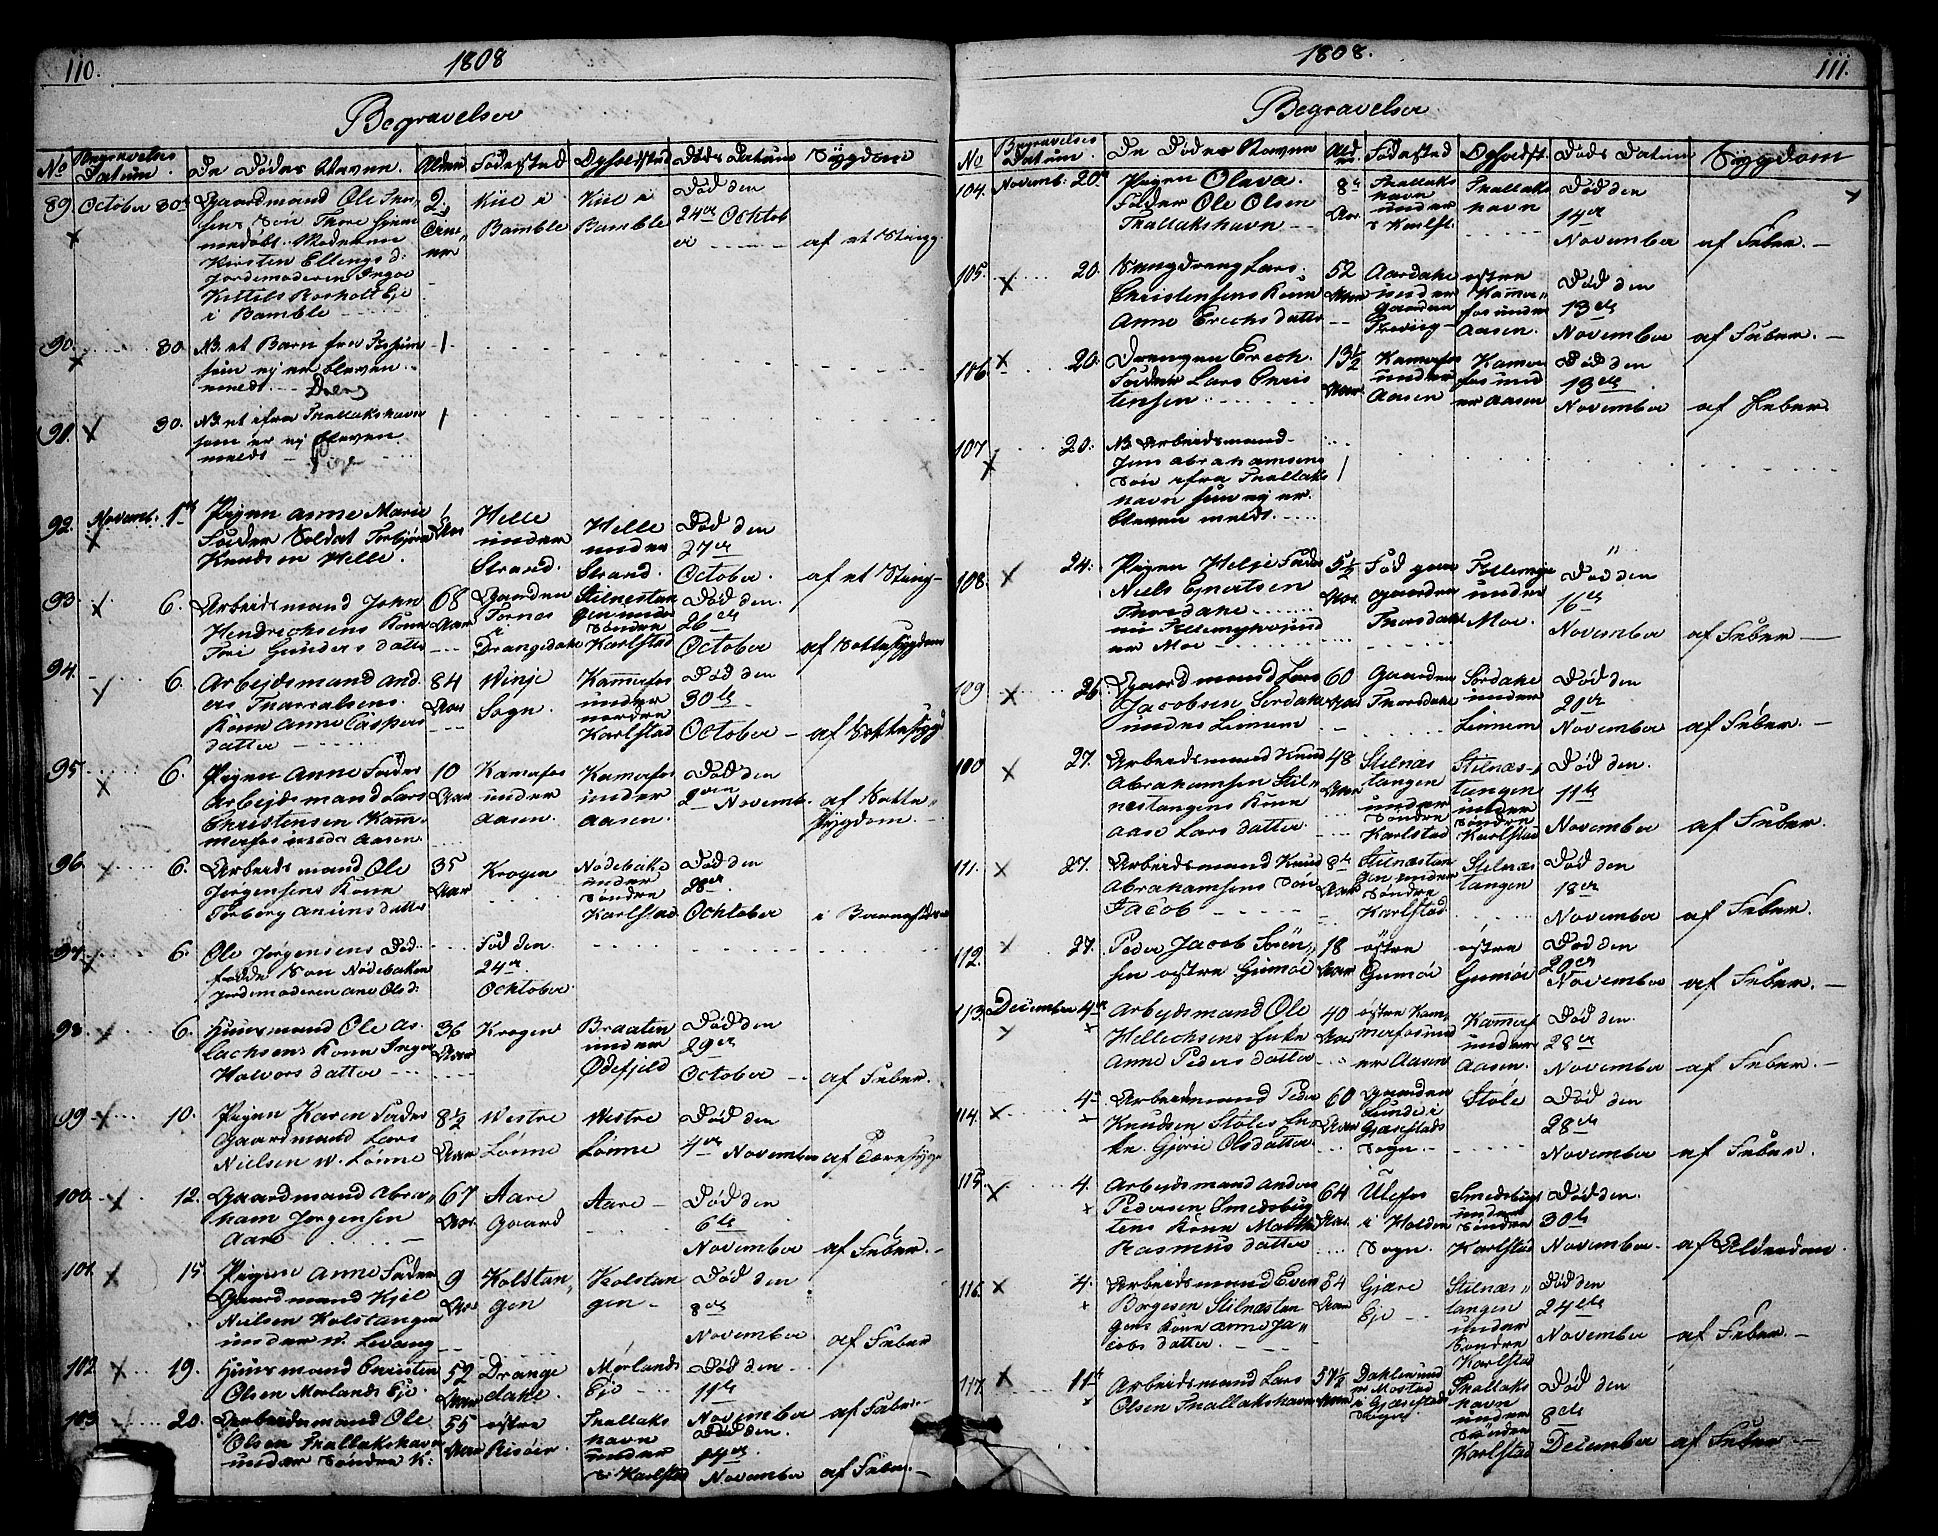 110.
1808
Begravelser
No
Begravelses
Datum.
De Dødes Navne
Alder
Fødested
Opholdsted
Døds Datum
Sÿgdom
89.
October 30
Gaardmand Ole
Søn Thore hjem
medøbt. Moderen
Kirsten Ellings d:
Jordemoderen Inger
Kittels Rosholt Eje
i Bamble
2
Kiie i
Bamble
Kiie i
Bamble
Død den
24de Ocktob
er
af et Sting.
90.
30.
NB. et Barn fra
som ej er bleven
meldt.
1
91.
30.
NB. et ifra Tnallakshavn
som er ej bleven
meldt
Pige
1
92.
Novemb. 1ste
Pigen Anne Marie
Fader Soldat Torbjørn
Knudsen Helle.
6
Aar
Helle
under
Strand.
Helle
under
Strand.
Død den
27de
October.
af et Sting
93.
6.
Arbeidsmand John
Hendrichsens Kone
Tori Gunders datter
68
Aar
Gaarden
Tornes
i
Drangedale
Stilnestan
gen under
Søndre
Karlstad
Død den
26de
October
af Sottesÿgdom
94.
6.
Arbejdsmand And
ers Tharralsens
Kone Anne Caspers
datter
84
Aar
Winje
Sogn.
Kammerfos
under
nordre
Karlstad
Død den
30te
October
af Sottesÿgd
95.
6.
Pigen Anne Fader
Arbejdsmand Lars
Christensen Kam
merfos under Aasen
10
Aar
Kamerfos
under
Aasen.
Kamerfos
under
Aasen.
Død den
2den Novemb.
af Sotte
sÿgdom.
96.
6.
Arbeidsmand Ole
Jørgensens Kone
Torborg Aniens datter
35
Aar
Krogen
Nødebake
under
Søndre
Karlstad
Død den
28de
Ocktober
i Barnefødsel
97.
6.
Ole Jørgensens Død
fødde Søn Nødebaken
Jordemoderen Ane Ols d:
Fød den
24de
Ocktober
98.
6.
Huusmand Ole As
lachsens Kone Inger
Halvors datter
36
Aar
Krogen
Braaten
under
Ødefjeld
Død den
29de
October
af Feber.
99.
10.
Pigen Karen Fader
Gaardmand Lars
Nielsen W. Lønne
8½
Aar
Westre
Lønne
Westre
Lønne
Død den
4de November
100.
12.
Gaardmand Abra
ham Jørgensen
Aarø
67
Aar
Aare
Gaard
Aare
Død den
6te
November
af Feber.
101.
15.
Pigen Anne Fader
Gaardmand Kjel
Nielsen Kolstangen
under W. Levang
9
Aar
Kolstan
gen
Kolstan
gen
Død den
8de
November
af Feber
102.
19.
Huusmand Christen
Olsen Mørlands Eje.
52
Aar
Drange
dale.
Mørlands
Eje
Død den
11te
November
af Feber
103.
20.
Arbeidsmand Ole
Olsen Tnallakshavn
under Søndre K:
55
Aar
østre
Risöer.
Tnallaks
havn
under
S: Karlstad
Død den.
14de
November
af Feber.
1808.
111.
Begravelser
No
Begravelses
Datum.
De Dødes Navne
Ald
er.
Fødested
Opholdst.
Døds Datum
Sÿgdom
104.
Novemb: 20de
Pigen Olava.
Fader Ole Olsen
Tnallakshavn
8
Aar.
Tnallaks
havn
under
S Karlst.
Tnallaks
havn
Død den
14de
November
af Feber.
105.
20.
Lars
Christensens Kone
Anne Erichs datter
52
Aar
Aardake
under
Gaarden
østre
Kammer
fos under
Aasen.
Død den
13de
November
af Feber.
106.
20.
Drengen Erech.
Fader Lars Chris
tensen
13½
Aar.
Kamerfos
under
Aasen
Kamer
fos und
er Aasen
Død den
13de
November
af Feber.
107
20.
NB. Arbeidsmand
Jens Abrahamsens
Søn ifra Tnallaks
havn som ej er
bleven meldt.
1
108.
24.
Pigen Helje Fader
Niels Ejvertsen
Thorsdake
nu Fellemyhr und
er Moe
5½
Aar.
Fød paa
gaarden
Thorsdake
under
Moe.
Død den
16de
November
af Feber
109
26.
Gaardmand Lars
Jacobsen Sørdake
under Linnem
60
Aar
Gaarden
Thorsdake
Sørdake
under
Linnem
Død den
20de
November
af Feber.
100
27.
Arbeidsmand Knud
Abrahamsen Stil
nestangens Kone
Aase Lars datter
48
Aar
Stilnæs
tangen
under
Søndre
Karlstad
Stilnæs
tangen
under
Søndre
Karlstad
Død den.
11te
November
af Feber.
111.
27.
Arbeidsmand Knud
Abrahamsens Søn
Jacob
8
Aar
Stilnæstan
gen under
Søndre
Karlstad.
Stilnæs
tangen
Død den
18de
November
af Feber.
112.
27.
Peder Jacob Sören
sen østre Gumöe
18
Aar
østre
Gumöe
østre
Gumöe
Død den
20de
November
af Feber.
113.
December 4de
Arbejdsmand Ole
Hellechsens Enke
Anne Peders datter
40
Aar
østre Kam
merfos und
er Aasen
Kammerf
under
Aasen.
Død den
28de
November
af Feber.
114.
4
Arbeidsmand Peder
Knudsen Støles En
ke. Gjøri Olsdatter
60
Aar
Gaarden
Lunde i
Gjæstads
Sogn.
Støle
Død den
28de
November
af Feber.
115.
4.
Arbejdsmand Anders
Pedersen Smedsbug
tens Kone Marthe
Rasmus datter
64
Aar.
Ulefos
i Holden
Sogn.
Smedsbugt
under
Søndre
Karlstad
Død den.
30te
November.
af Alderdom.
116.
4.
Arbeidsmand Even
Børgesen Stilnæstan
gens Kone Anne Ja
cobs datter.
84
Aar
Gjære
Eje
Stilnæs
tangen
under
Søndre
Karlstad
Død den
24de
November
af Feber.
117.
11te
Arbeidsmand Lars
Olsen Tnallakshavn
57½
Aar
Dahlen und
er Mostad
i Gjæsestad
Sogn.
Tnallaks
havn
under
Søndre
Karlstad
Død den
8de
December
af Feber